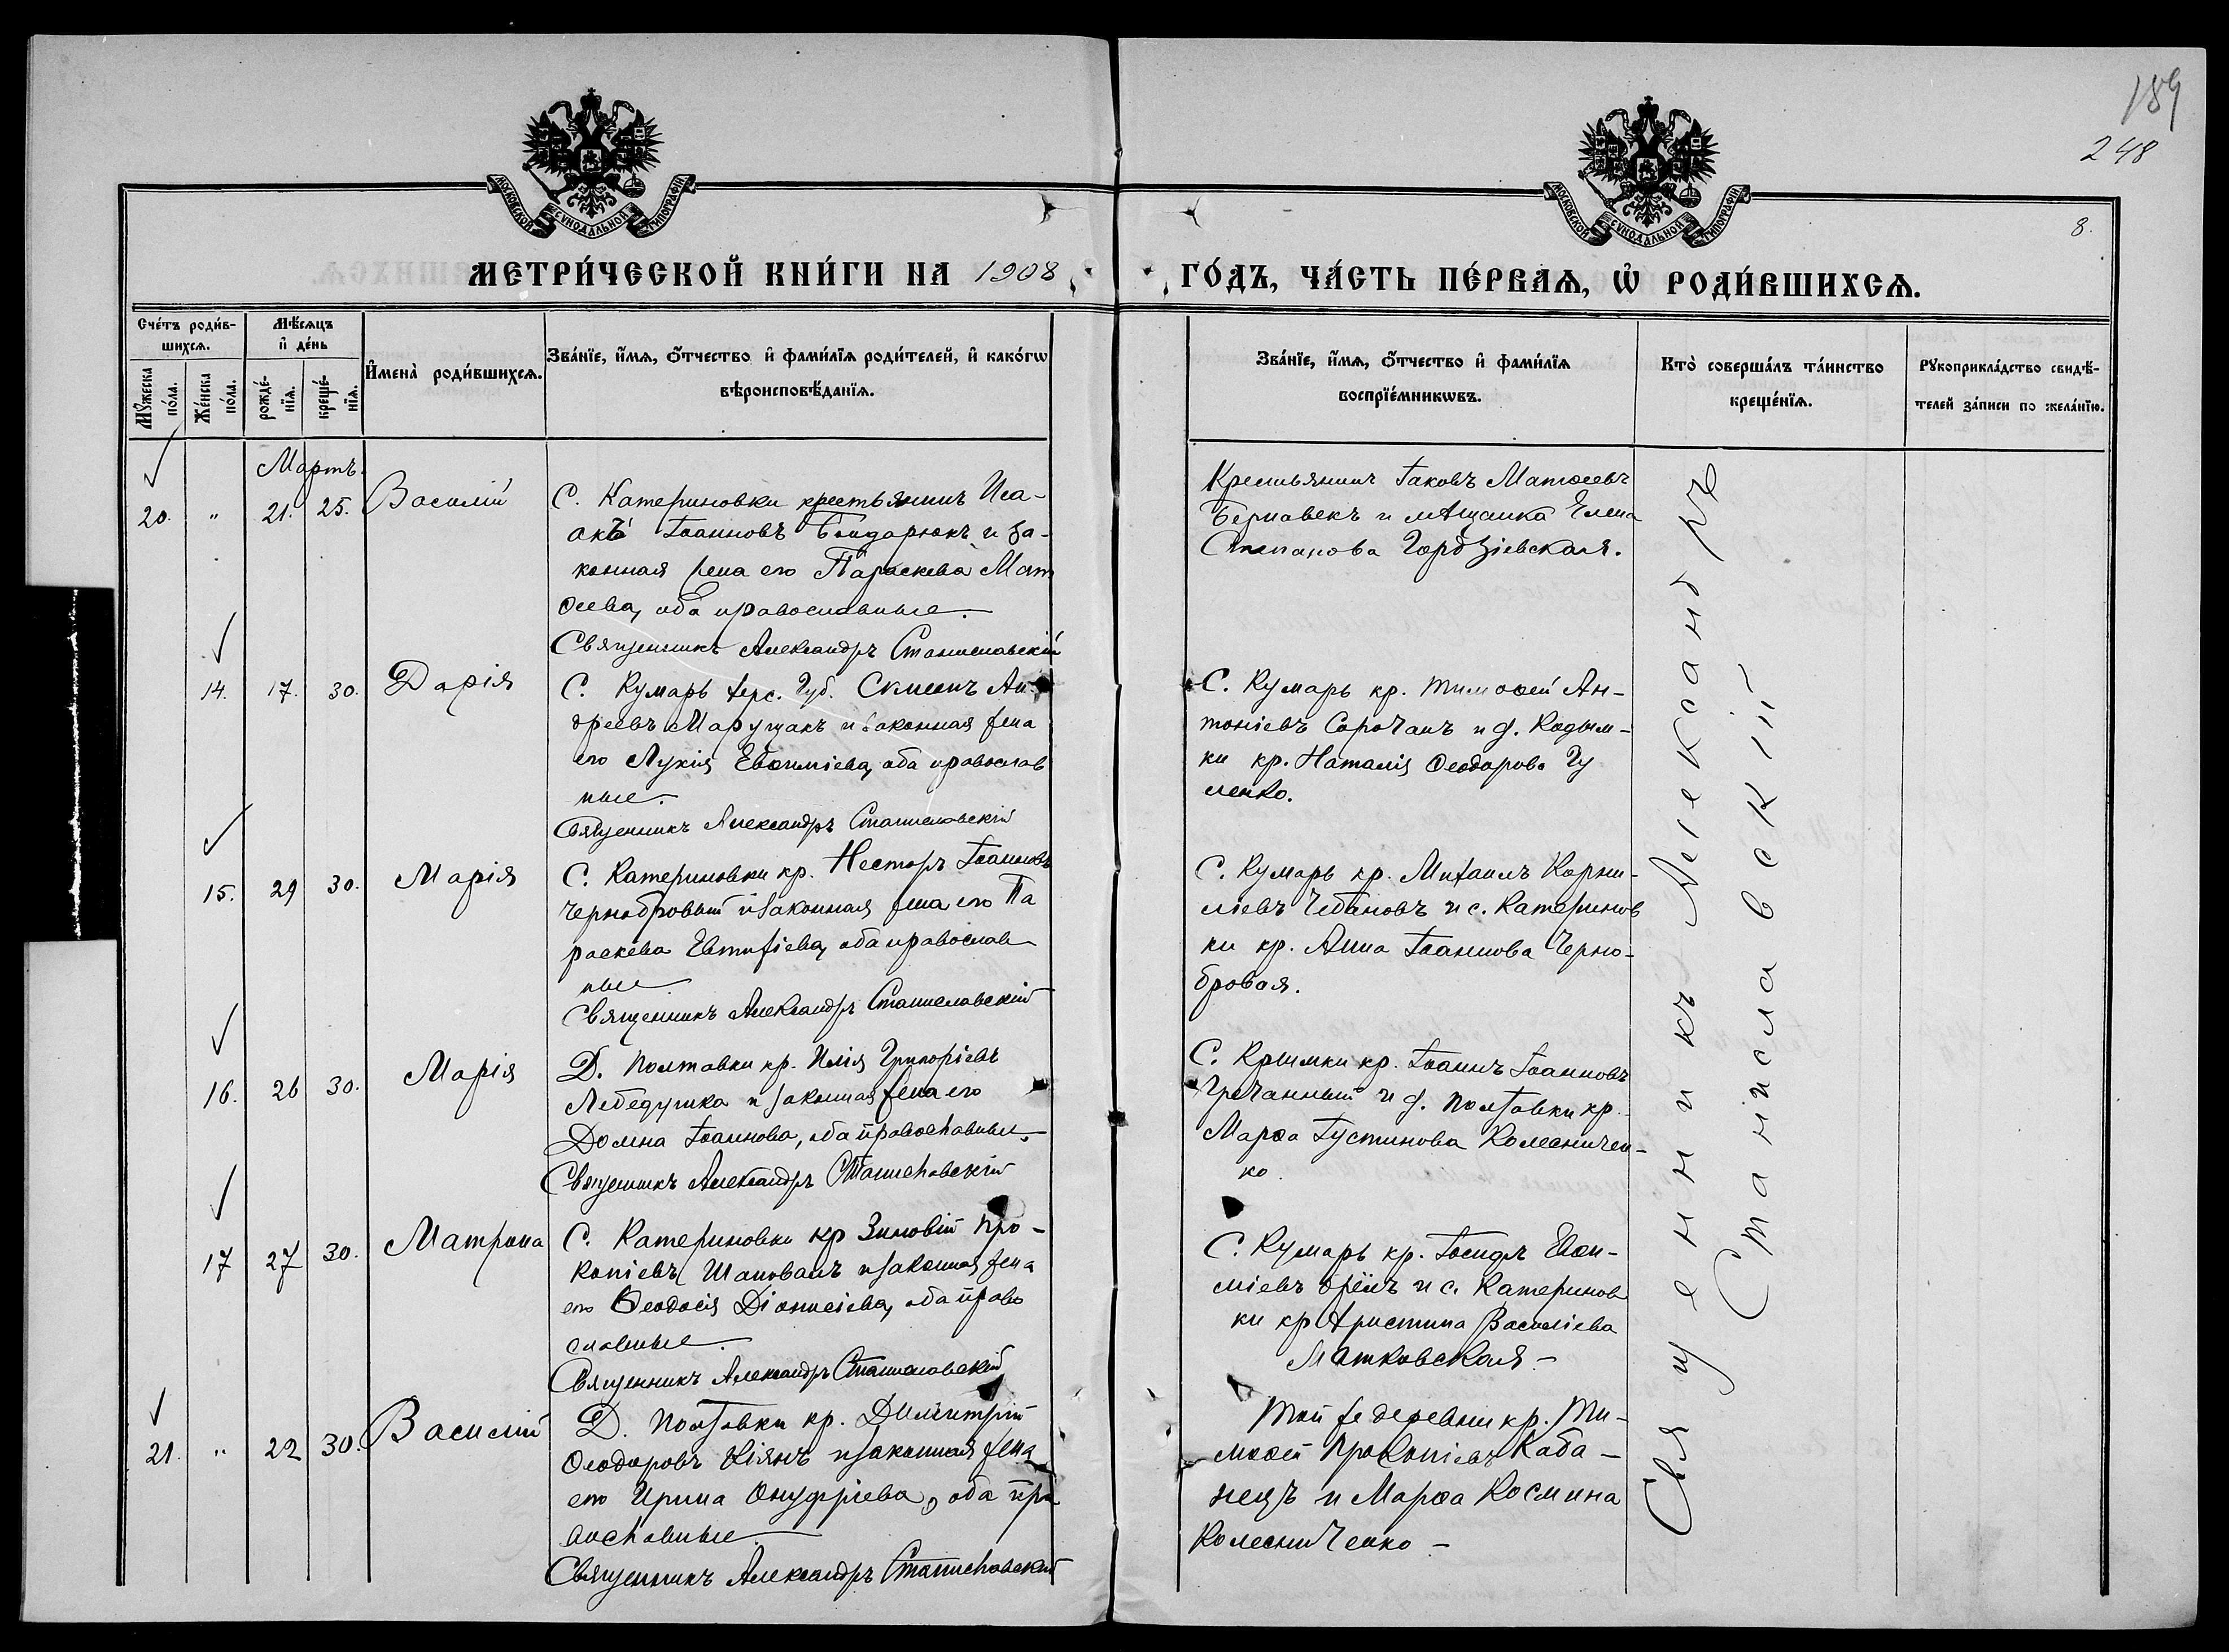 189
248
8.
МОСКОВСКОЙ СѴНОДАЛЬНОЙ ТИПОГРАФІИ
МОСКОВСКОЙ СѴНОДАЛЬНОЙ ТИПОГРАФІИ
МЕТРИ́ЧЕСКОЙ КНИ́ГИ НА 1908
ГО́ДЪ, ЧА́СТЬ ПЕ́РВАѦ, Ѡ҆ РОДИ́ВШИХСѦ.
Сче́тъ роди́в-
шихсѧ.
Мѣ́сѧцъ
и҆ де́нь
Мꙋ́жеска
по́ла.
Же́нска
по́ла.
рожде́-
нїѧ.
креще́-
нїѧ.
И҆мена̀ роди́вшихсѧ.
Зва́нїе, и҆́мѧ, ѻ҆́тчество и҆ фами́лїѧ роди́телей, и҆ како́гѡ
вѣроисповѣ́данїѧ.
Зва́нїе, и҆́мѧ, ѻ҆́тчество и҆ фами́лїѧ
воспрїе́мникѡвъ.
Кто̀ соверша́лъ та́инство
креще́нїѧ.
Рꙋкоприкла́дство свидѣ́-
телей за́писи по жела́нїю.
Мартъ.
20. " 21. 25. Василій
С. Катериновки крестьянинъ Иса-
акъ Іоанновъ Бондарюкъ и за-
конная жена его Параскева Мат
ѳеева, оба православные.
Священникъ Александръ Станиславскій
Крестьянинъ Іаковъ Матѳеевъ
Бернавекъ и мѣщанка Елена
Степанова Гордзіевская.
14. 17. 30. Дарія
С. Кумарь Херс. Губ. Ан-
дреевъ Марущакъ и законная жена
его Лукія Евѳиміева, оба православ
ные.
Священникъ Александръ Станиславскій
С. Кумарь кр. Тимоѳей Ан-
тоніевъ Сорочанъ и д. Кодым-
ки кр. Наталія Ѳеодорова Гу
ленко.
15. 29 30. Марія
С. Катериновки кр. Несторъ Іоанновъ
Чернобровый и законная жена его Па
раскева Евтихіева, оба православ
ные.
Священникъ Александръ Станиславскій
С. Кумарь кр. Михаилъ Корни-
ліевъ Чебановъ и с. Катеринов
ки кр. Анна Іоаннова Черно-
бровая.
16. 26 30. Марія
Д. Полтавки кр. Илія Григоріевъ
Лебедушка и законная жена его
Домна Іоаннова, оба православные.
Священникъ Александръ Станиславскій
С. Крымки кр. Іоаннъ Іоанновъ
Гречанный и д. Полтавки кр.
Марѳа Іустинова Колесничен-
ко.
17 27 30. Матрона
С. Катериновки кр Зиновій Про-
копіевъ Шаповалъ и законная жена
его Ѳеодосія Діонисіева, оба право
славные.
Священникъ Александръ Станиславскій
С. Кумарь кр. Іосифъ Евѳи-
міевъ и с. Катеринов
ки кр Христина Василіева
Матковская.-
21. " 22 30. Василій
Д. Полтавки кр. Димитрій
Ѳеодоровъ Кіянъ и законная жена
его Ирина Онуфріева, оба пра
вославные.
Священникъ Александръ Станиславскій
Той же деревни кр. Ти-
моѳей Прокопіевъ Каба-
нецъ и Марѳа Космина
Колесниченко -
Священникъ Александръ
Станиславскій